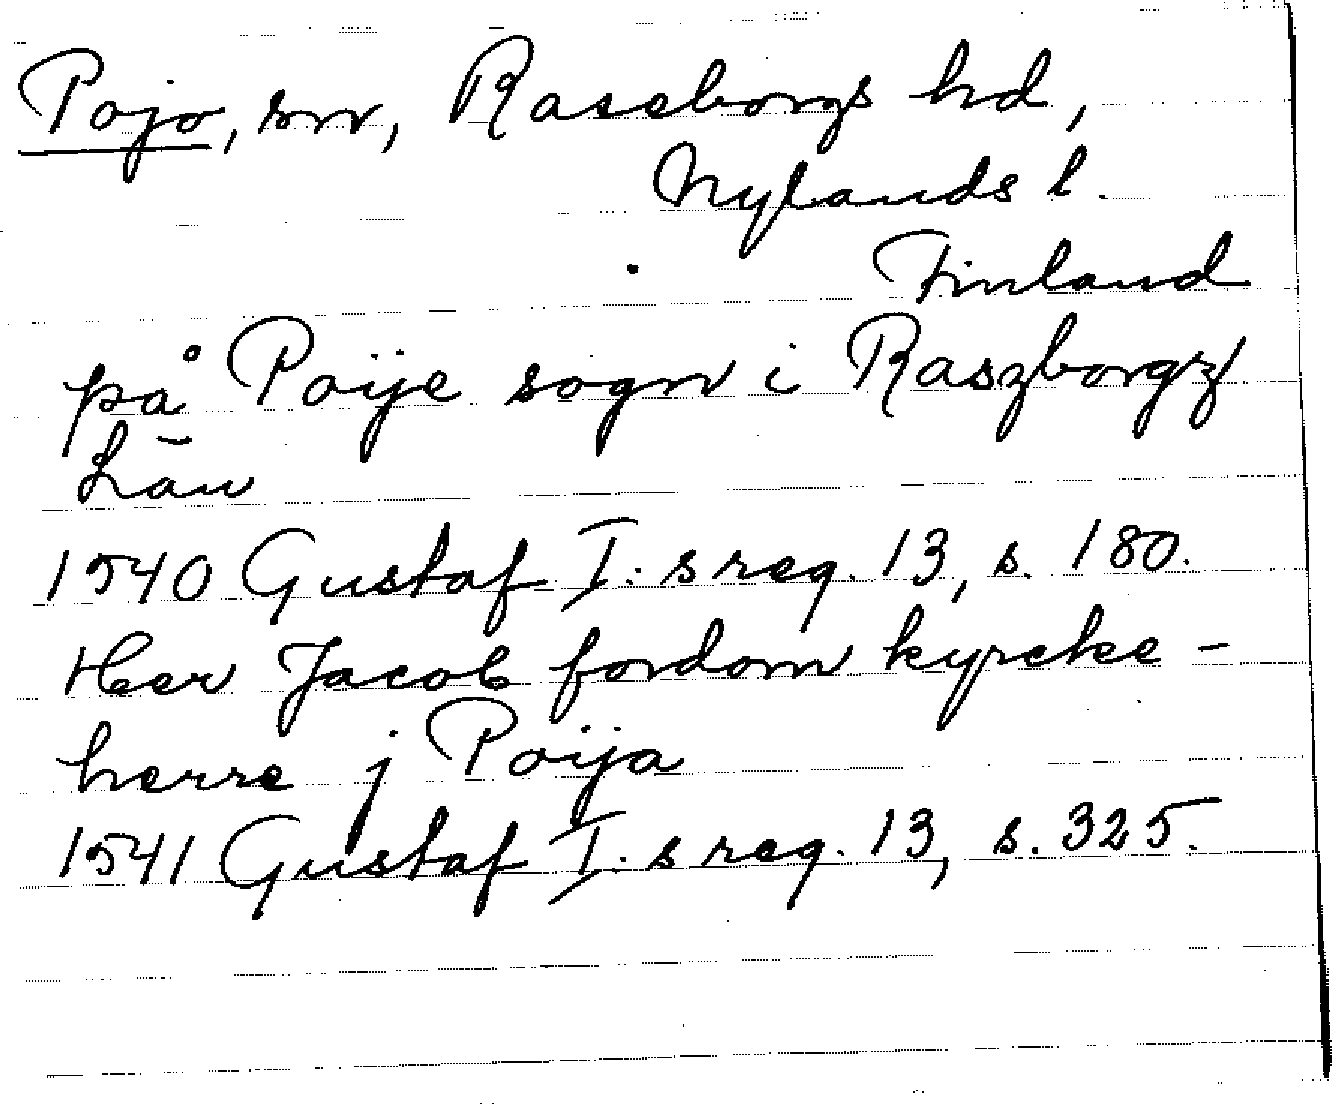 Pojo, sn, Raseborgs hd,
Nylands l.
Finland
på Poije sogn i Raszborgz
Län
1540 Gustaf I:s reg. 13, s. 180.
Her Jacob fordom kyrcke-
herre j Poija
1541 Gustaf I:s reg. 13, s. 325.